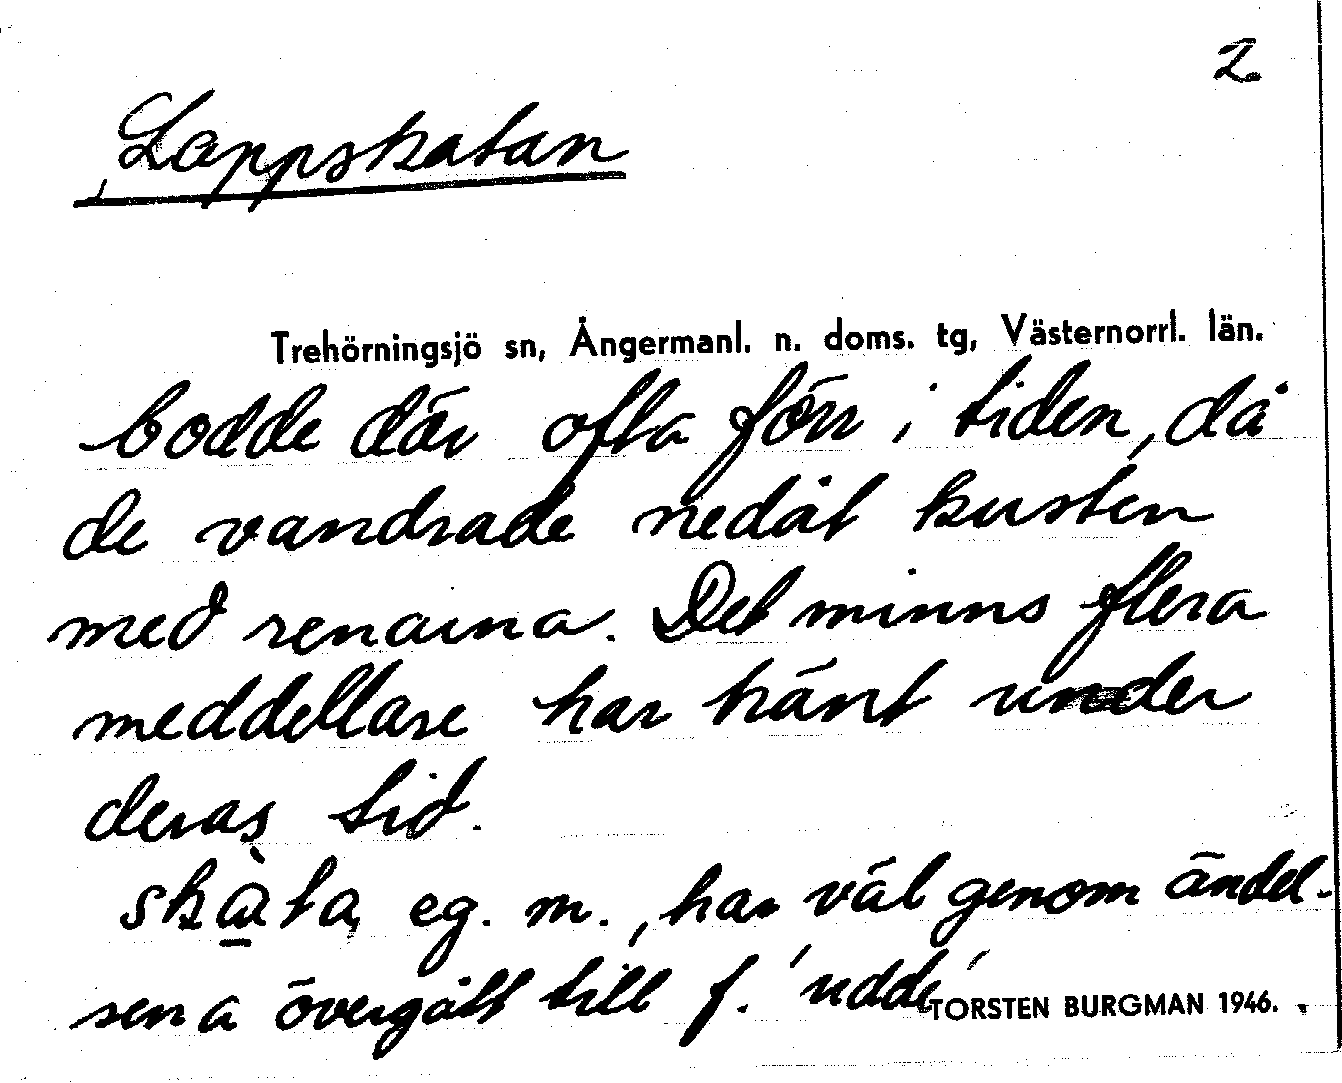 2
Lappskatan
Trehörningsjö sn, Ångermanl. n. doms. tg, Västernorrl. län.
bodde där ofta förr i tiden, då
de vandrade nedåt kusten
med renarna. Det minns flera
meddellare har hänt under
deras tid.
skàta, eg. m., har väl genom ändel-
sen a övergått till f. 'udde'
TORSTEN BURGMAN 1946.